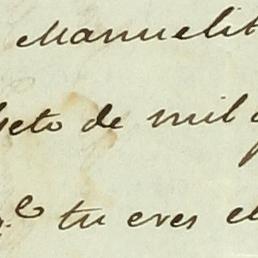 Manuelit
jeto de mil
tu eres el